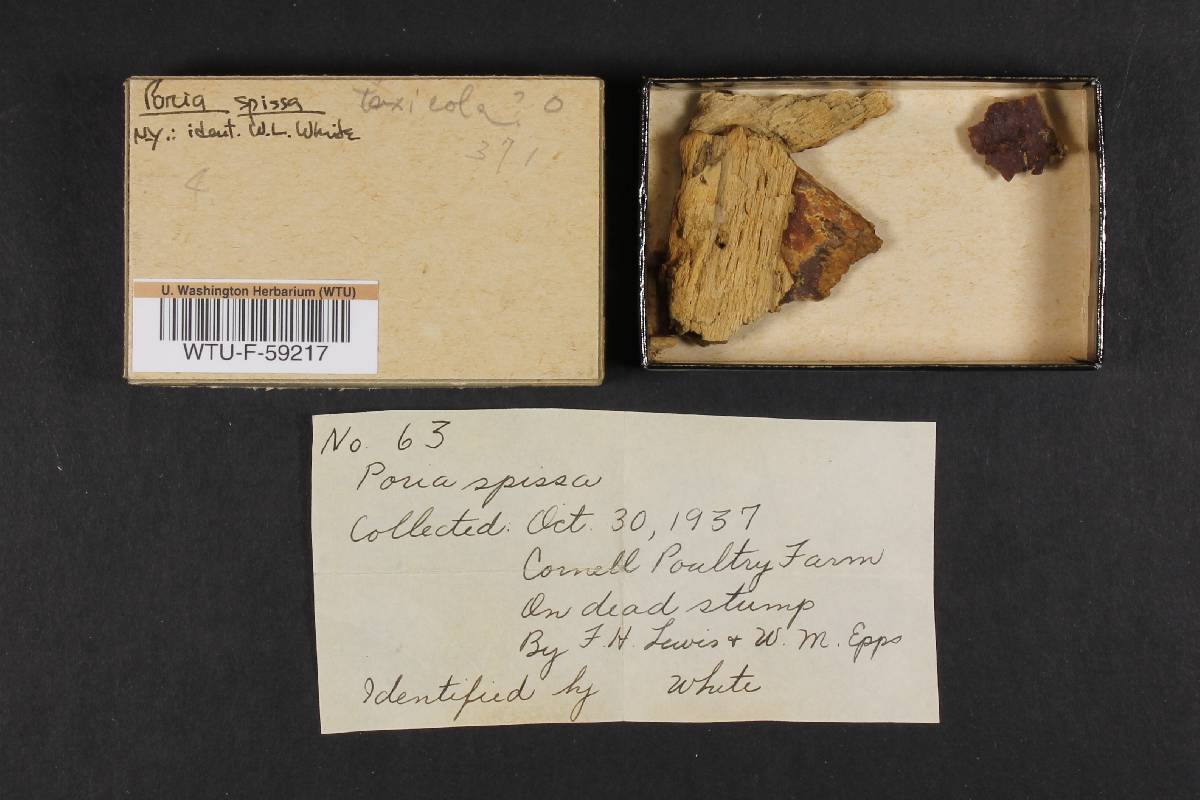 Poria spissa taxicola? O
NY.: ident. W.L. White
371
4
U. Washington Herbarium (WTU)
WTU-F-59217
No. 63
Poria spissa
Collected: Oct. 30, 1937
Cornell Poultry Farm
On dead stump
By F. H. Lewis + W. M. Epps
Identified by White